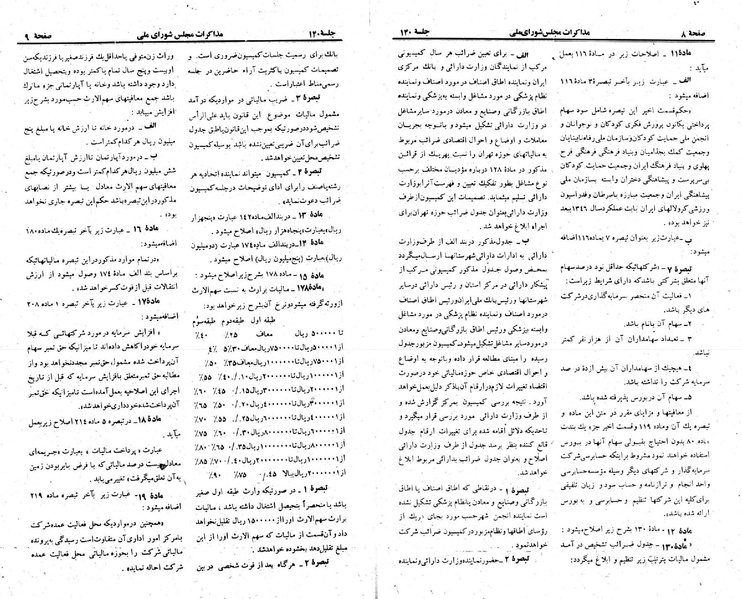 صفحه ۸
مذاکرات مجلس شورای ملی
جلسه ۱۲۰
ماده ۱۱ـ اصلاحات زیر در ماده ۱۱۶ بعمل
میآید:
الف ـ عبارت زیر بآخر تبصره ۳ ماده ۱۱۶
اضافه میشود:
«حکم قسمت اخیر این تبصره شامل سود سهام
پرداختی بکانون پرورش فکری کودکان و نوجوانان و
انجمن ملی حمایت کودکان و سازمان ملی رفاه نابینایان
وجمعیت کمک بجذامیان و بنیاد فرهنگی فرح
پهلوی و بنیاد فرهنگ ایران وجمعیت حمایت کودکان
بی‌سرپرست و پیشاهنگی دختران وابسته بسازمان ملی
پیشاهنگی ایران وجمعیت مبارزه باسرطان وفدراسیون
ورزشی کرولالهای ایران بابت عملکرد سال ۱۳۴۶ ببعد
خواهد بود.»
ب ـ عبارت زیر بعنوان تبصره ۷ بماده ۱۱۶ اضافه
میشود:
تبصره ۷ ـ شرکتهائیکه حداقل نود درصد سهام
آنها متعلق بشرکتی باشد که دارای شرایط زیر است:
۱ـ فعالیت آن منحصر بسرمایه گذاری در شرکت
های دیگر باشد.
۲ـ سهام آن بانام باشد.
۳ـ تعداد سهامداران آن از هزار نفر کمتر
نباشد.
۴ـ هیچیک از سهامداران آن بیش از ده درصد
سرمایه شرکت را نداشته باشد.
۵ـ سهام آن در بورس پذیرفته شده باشد.
از معافیتها و مزایای مقرر در متن این ماده و
تبصره یک آن وماده ۱۱۹ وقسمت اخیر جزء یک بند ت
ماده ۸۰ بدون احتیاج بقبولی سهام آنها در بورس
استفاده خواهند نمود مشروط براینکه حسابرسی شرکت
سرمایه گذار و شرکتهای دیگر وسیله مؤسسه حسابرسی
واحد انجام و ترازنامه و حساب سود و زیان تلفیقی
برای کلیه این شرکتها تنظیم و حسابرسی و به بورس
ارائه شده باشد.
ماده ۱۲ ـ ماده ۱۳۰ بشرح زیر اصلاح میشود:
«ماده ۱۳۰ـ جدول ضرائب تشخیص درآمد
مشمول مالیات بترتیب زیر تنظیم و ابلاغ میگردد:
الف ـ برای تعیین ضرائب هر سال کمیسیونی
مرکب از نمایندگان وزارت دارائی و بانک مرکزی
ایران ونماینده اطاق اصناف در مورد اصناف ونماینده
نظام پزشکی در مورد مشاغل وابسته به‌پزشکی ونماینده
اطاق بازرگانی وصنایع و معادن در مورد سایر مشاغل
در وزارت دارائی تشکیل میشود و باتوجه بجریان
معاملات و اوضاع و احوال اقتصادی ضرائب مربوط
به مالیاتهای حوزه تهران را نسبت بهریک از قرائن
مذکور در ماده ۱۲۸ درباره مؤدیان مختلف برحسب
نوع مشاغل بطور تفکیک تعیین و فهرست آنرا بوزارت
دارائی تسلیم مینماید. تصمیمات این کمیسیون از طرف
وزارت دارائی بعنوان جدول ضرائب حوزه تهران برای
اجراء ابلاغ خواهد شد.
ب ـ جدول مذکور دربند الف از طرف وزارت
دارائی به ادارات دارائی شهرستانها ارسال میگردد
بمحض وصول جدول مذکور کمیسیونی مرکب از
پیشکار دارائی در مرکز استان و رئیس دارائی در سایر
شهرستانها و رئیس بانک ملی ایران ورئیس اطاق اصناف
در مورد اصناف ونماینده نظام پزشکی در مورد مشاغل
وابسته بپزشکی ورئیس اطاق بازرگانی وصنایع ومعادن
درمورد سایر مشاغل تشکیل میشود. کمیسیون مزبور جدول
رسیده را مبنای مطالعه قرار داده و باتوجه به اوضاع
و احوال اقتصادی خاص حوزه مالیاتی خود درصورت
اقتضاء تغییرات لازم در ارقام آن باذکر دلیل بعمل خواهد
آورد. نتیجه بررسی کمیسیون بمرکز گزارش شده و
از طرف وزارت دارائی مورد بررسی قرار میگیرد و
تاحدیکه دلائل اقامه شده برای تغییرات ارقام جدول
قانع کننده بنظر برسد جدول از طرف وزارت دارائی
اصلاح و بعنوان جدول ضرائب بدارائی مربوط ابلاغ
خواهد شد.
تبصره ۱ ـ در نقاطی که اطاق اصناف یا اطاق
بازرگانی وصنایع و معادن یانظام پزشکی تشکیل نشده
است نماینده انجمن شهر حسب مورد بجای هریک از
رؤسای اطاقها ونظام مزبور در کمیسیون ضرائب شرکت
خواهد نمود.
تبصره ۲ ـ حضور نماینده وزارت دارائی ونماینده
جلسه ۱۲۰
مذاکرات مجلس شورای ملی
صفحه ۹
بانک برای رسمیت جلسات کمیسیون ضروری است.
تصمیمات کمیسیون باکثریت آراء حاضرین در جلسه
رسمی مناط اعتبار است.
تبصره ۳ ـ ضریب مالیاتی در مواردیکه درآمد
مشمول مالیات موضوع این قانون باید علی‌الرأس
تشخیص شود درصورتیکه بموجب این قانون یاطبق جدول
ضرائب برای آن ضریبی تعیین نشده باشد بوسیله کمیسیون
تشخیص محل تعیین خواهد شد.
تبصره ۴ ـ کمیسیون میتواند نماینده اتحادیه هر
رشته یا صنف را برای ادای توضیحات درجلسه کمیسیون
ضرائب دعوت نماید.»
ماده ۱۳ ـ دربند الف ماده ۱۴۷ عبارت (پنجهزار
ریال) بعبارت (پنجاه هزار ریال) اصلاح میشود.
ماده ۱۴ـ دربند الف ماده ۱۷۴ عبارت (دومیلیون
ریال) بعبارت (پنج میلیون ریال) اصلاح میشود.
ماده ۱۵ ـ ماده ۱۷۸ بشرح زیر اصلاح میشود:
«ماده ۱۷۸ـ مالیات برارث به نسبت سهم الارث
ازورثه گرفته میشود ونرخ آن بشرح زیر خواهد بود:
طبقه اول طبقه دوم طبقه سوم
تا ۵۰۰۰۰۰ ریال معاف ۲۵٪ ۴۰٪
از ۵۰۰۰۰۱ ریال تا ۷۵۰۰۰۰ ریال معاف ۳۰٪ ۴۵٪
از ۷۵۰۰۰۱ ریال تا ۱۰۰۰۰۰۰ ریال معاف ۳۵٪ ۵۰٪
از ۱۰۰۰۰۰۱ ریال تا ۲۰۰۰۰۰۰ ریال ۱۰٪ ۴۰٪ ۵۵٪
از ۲۰۰۰۰۰۱ ریال تا ۳۰۰۰۰۰۰ ریال ۱۵٪ ۴۵٪ ۶۰٪
از ۳۰۰۰۰۰۱ ریال تا ۴۰۰۰۰۰۰ ریال ۲۰٪ ۵۰٪ ۶۵٪
از ۴۰۰۰۰۰۱ ریال تا ۵۰۰۰۰۰۰ ریال ۲۵٪ ۵۵٪ ۷۰٪
از ۵۰۰۰۰۰۱ ریال تا ۶۰۰۰۰۰۰ ریال ۳۰٪ ۶۰٪ ۷۵٪
از ۶۰۰۰۰۰۱ ریال تا ۸۰۰۰۰۰۰ ریال ۳۵٪ ۶۵٪ ۸۰٪
۴۰٪ ۷۰٪ ۸۵٪
ریال ببالا ۴۵٪ ۷۵٪ ۹۰٪
تبصره ۱ ـ در صورتیکه وارث طبقه اول صغیر
باشد یا منحصراً بتحصیل اشتغال داشته باشد، مالیات
برارث سهم الارث اورا از ۱۵۰۰۰۰۰ ریال تقلیل نخواهد
داد وآن قسمت از مالیات که سهم الارث اورا از این
مبلغ تقلیل دهد بخشوده خواهد شد.
تبصره ۲ ـ هرگاه بعد از فوت شخصی در بین
وراث زن متوفی یا حداقل یک فرزند صغیر یا فرزندیکه سن
اوبیست وپنج سال تمام یا کمتر بوده وبتحصیل اشتغال
دارد وجود داشته باشد و خانه یا آپارتمانی جزء ماترک
باشد جمع معافیتهای سهم الارث حسب مورد بشرح زیر
افزایش مییابد:
الف ـ در مورد خانه تا ارزش خانه یا مبلغ پنج
میلیون ریال هرکدام کمتر است.
ب ـ در مورد آپارتمان تا ارزش آپارتمان یا مبلغ
شش میلیون ریال هرکدام کمتر است ودرصورتیکه جمع
معافیتهای سهم الارث معادل یا بیشتر از نصابهای
مذکور در این تبصره باشد حکم این تبصره جاری نخواهد
بود.»
ماده ۱۶ ـ عبارت زیر بآخر تبصره یک ماده ۱۸۰
اضافه میشود:
«درتمام موارد مذکور در این تبصره مالیاتهائیکه
براساس بند الف ماده ۱۷۴ وصول میشود از ارزش
انتقالات قبل از فوت کسر خواهد شد.»
ماده ۱۷ـ عبارت زیر بآخر تبصره ۱ ماده ۲۰۸
اضافه میشود:
«افزایش سرمایه در مورد شرکتهائی که قبلا
سرمایه خود را کاهش داده‌اند تا میزانیکه حق تمبر سهام
آن پرداخت شده مشمول حق تمبر مجدد نخواهد بود و از
مطالبه حق تمبر متعلق بافزایش سرمایه که قبل از تاریخ
اجرای این اصلاحیه بعمل آمده است تا میزانیکه حق تمبر
آن پرداخت شده خودداری خواهد شد.»
ماده ۱۸ـ در تبصره ۵ ماده ۲۱۴ اصلاح زیر بعمل
میآید.
«عبارت «پرداخت مالیات» بعبارت «جریمه‌ای
معادل بیست درصد مالیاتی که با فرض بایر بودن زمین
به آن تعلق میگرفت» تغییر مییابد.»
ماده ۱۹ـ عبارت زیر بآخر تبصره ماده ۲۱۹
اضافه میشود:
«همچنین در مواردیکه محل فعالیت عمده شرکت
بامرکز امور اداری آن متفاوت است رسیدگی به پرونده
مالیاتی شرکت را بحوزه مالیاتی محل فعالیت عمده
شرکت احاله نماید.»